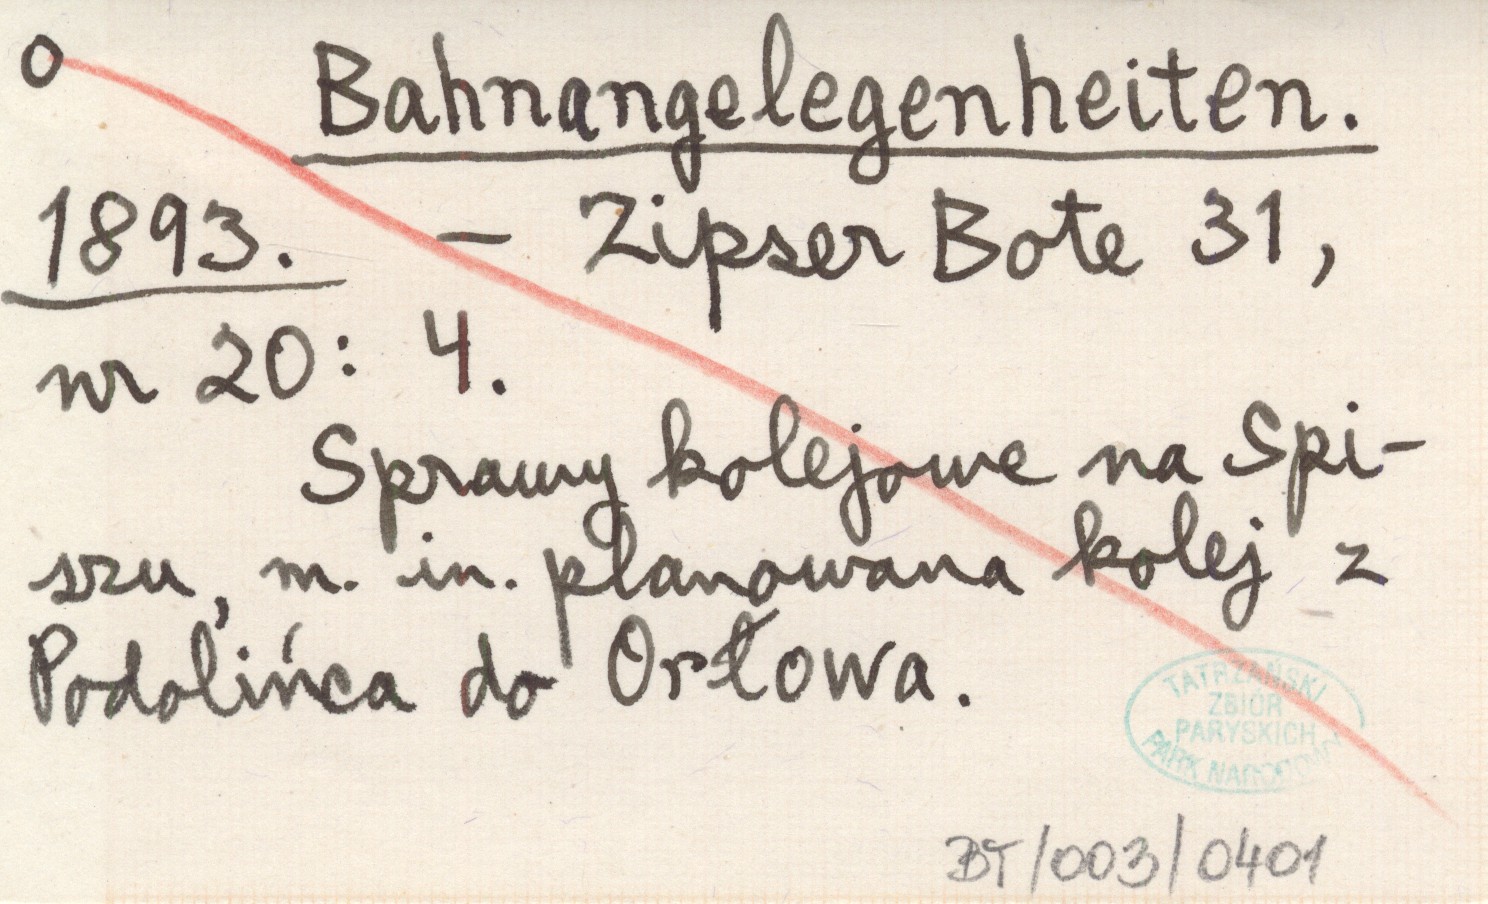 o Bahnangelegenheiten.
1893. – Zipser Bote 31,
nr 20: 4.
Sprawy kolejowe na Spi-
szu, m. in. planowana kolej z
Podolińca do Orłowa.
TATRZAŃSKI
ZBIÓR
PARYSKICH
PARK NARODOWY
BT/003/0401